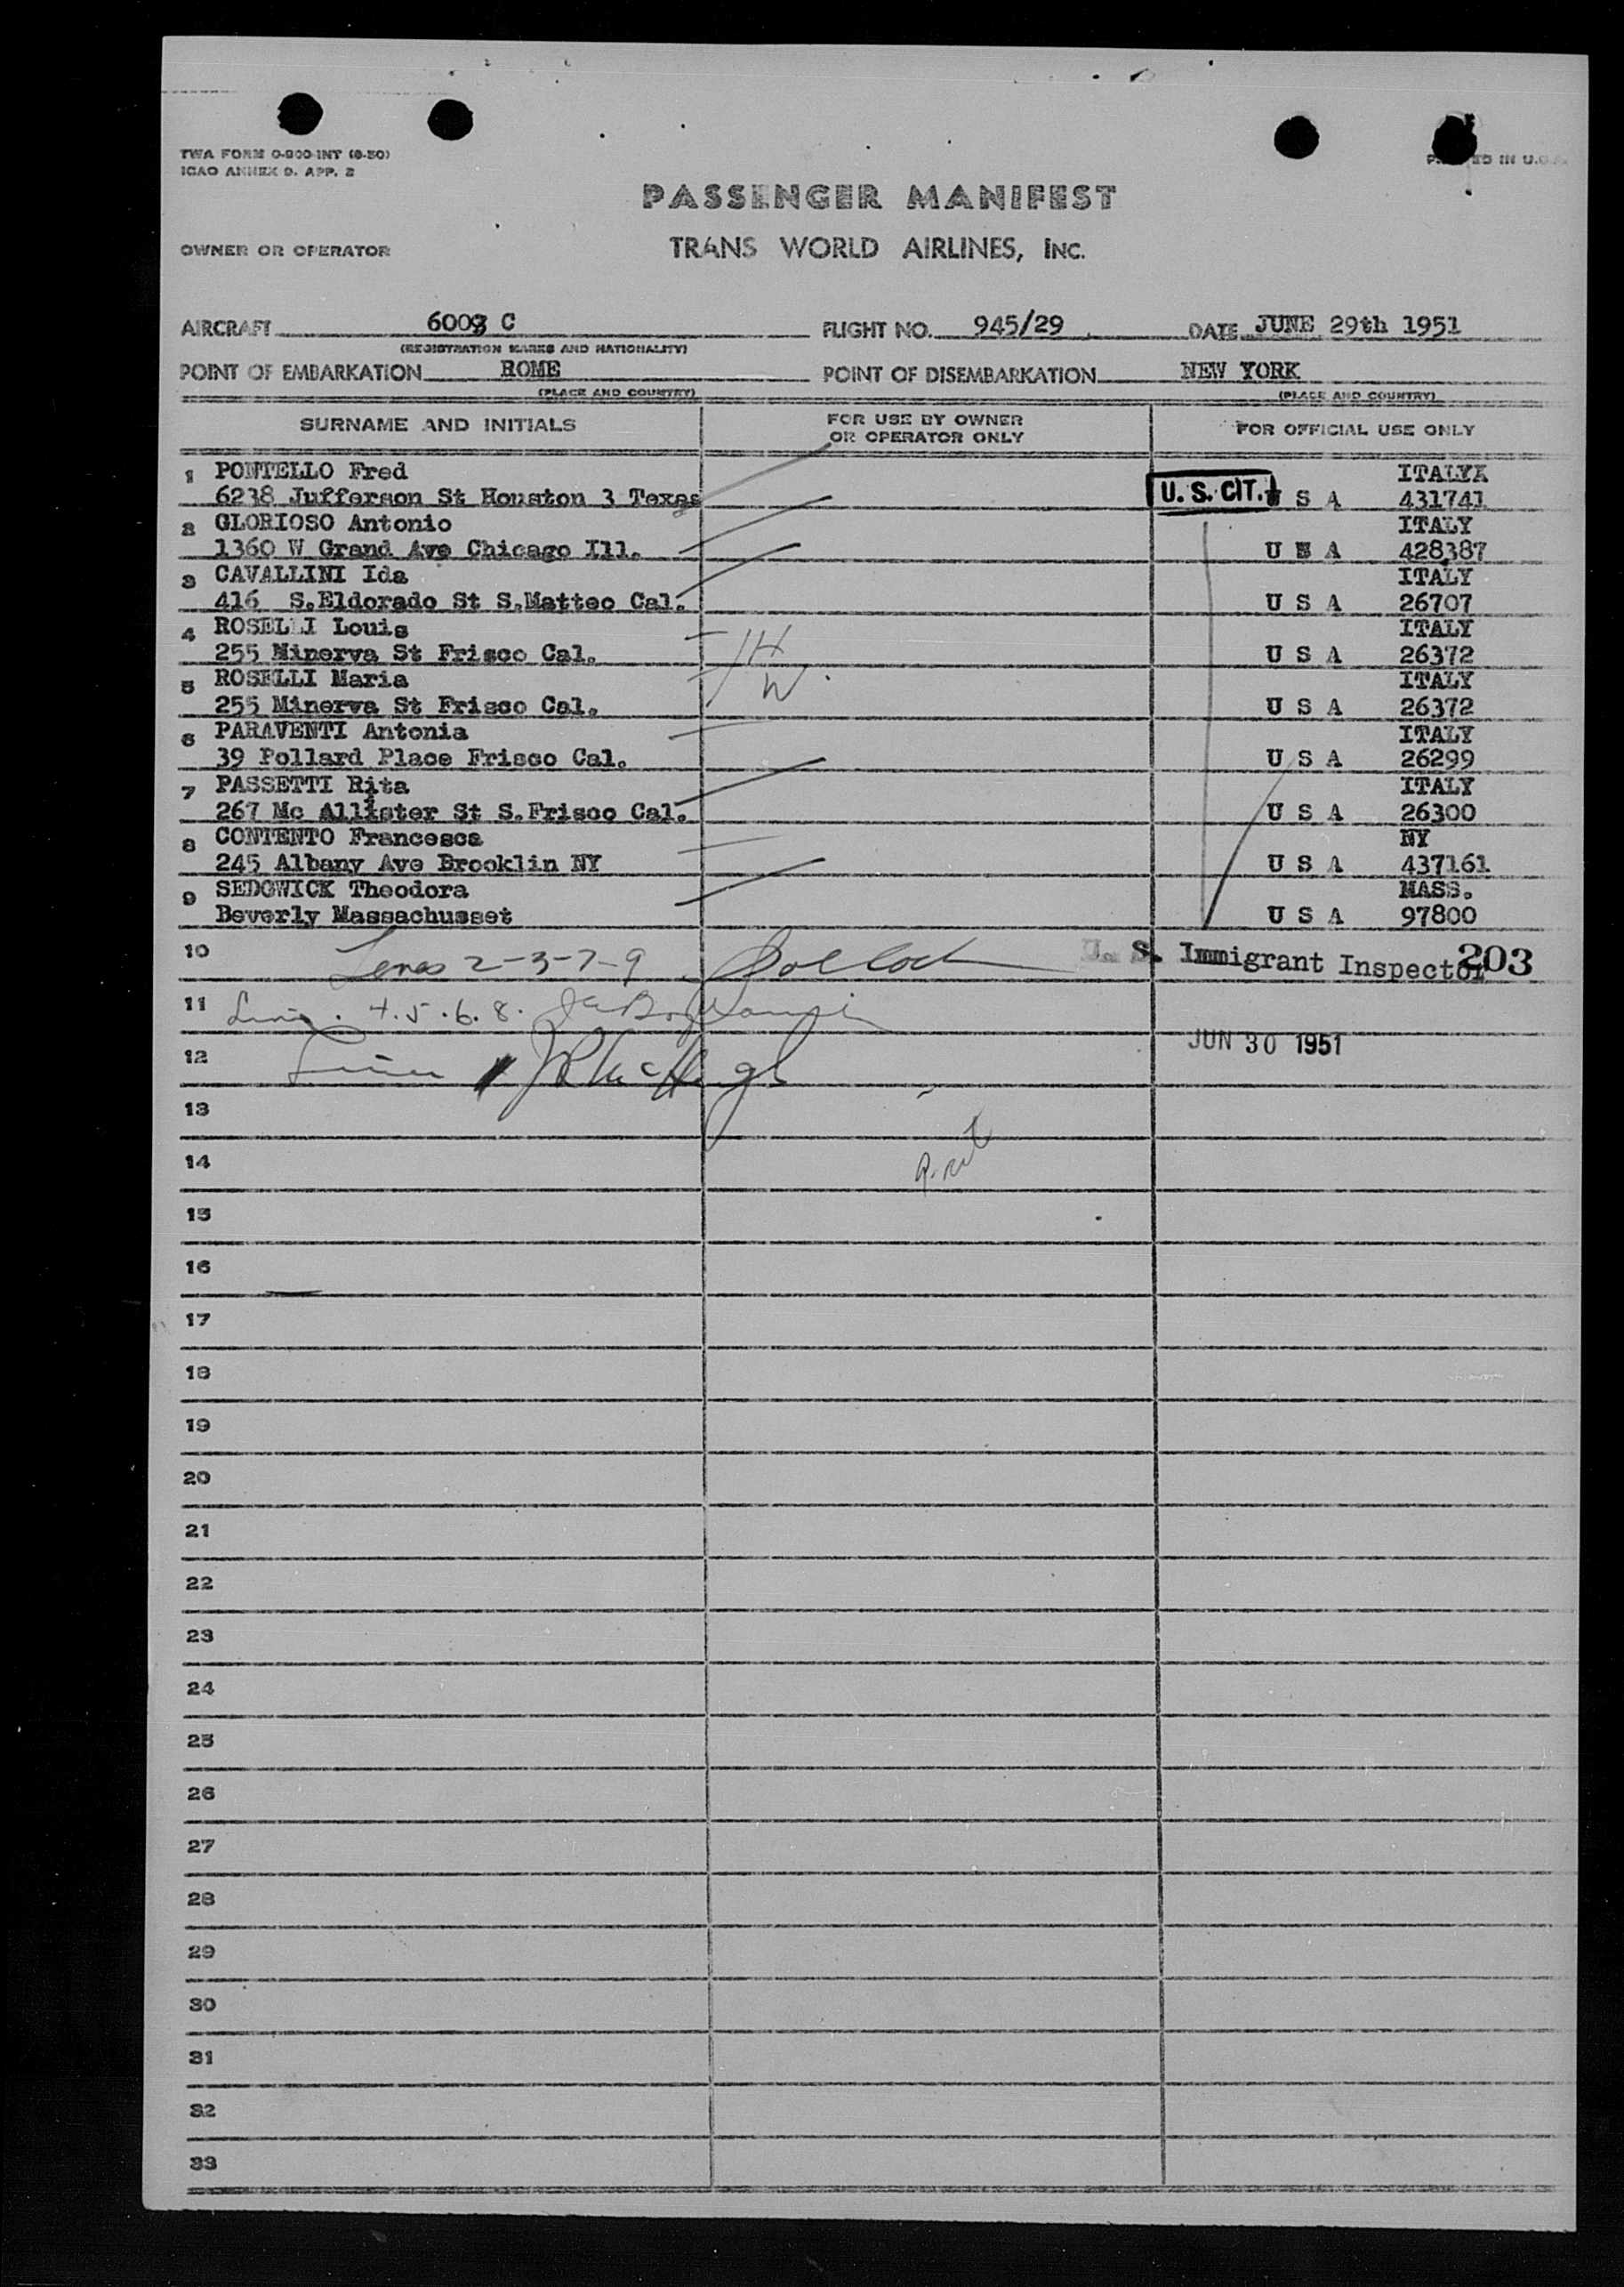 TWA FORM 0-900-INT (8-50)
ICAO ANNEX 9. APP. 2
ED IN U.S.A.
PASSENGER MANIFEST
OWNER OR OPERATOR TRANS WORLD AIRLINES, INC.
AIRCRAFT 6003 C FLIGHT NO. 945/29 DATE JUNE 29th 1951
(REGISTRATION MARKS AND NATIONALITY)
POINT OF EMBARKATION ROME POINT OF DISEMBARKATION NEW YORK
(PLACE AND COUNTRY) (PLACE AND COUNTRY)
SURNAME AND INITIALS FOR USE BY OWNER OR OPERATOR ONLY FOR OFFICIAL USE ONLY
1 PONTELLO Fred ITALYX
6238 Jufferson St Houston 3 Texas U.S. CIT. U S A 431741
2 GLORIOSO Antonio ITALY
1360 W Grand Ave Chicago Ill. U S A 428387
3 CAVALLINI Ida ITALY
416 S.Eldorado St S.Matteo Cal. U S A 26707
4 ROSELLI Louis H ITALY
255 Minerva St Frisco Cal. U S A 26372
5 ROSELLI Maria W. ITALY
255 Minerva St Frisco Cal. U S A 26372
6 PARAVENTI Antonia ITALY
39 Pollard Place Frisco Cal. U S A 26299
7 PASSETTI Rita ITALY
267 Mc Allister St S.Frisco Cal. U S A 26300
8 CONTENTO Francesca NY
245 Albany Ave Brooklin NY U S A 437161
9 SEDGWICK Theodora MASS.
Beverly Massachusset U S A 97800
10 2-3-7-9 U. S. Immigrant Inspector 203
11 4.5.6.8.
12 JUN 30 1951
13
14
15
16
17
18
19
20
21
22
23
24
25
26
27
28
29
30
31
32
33